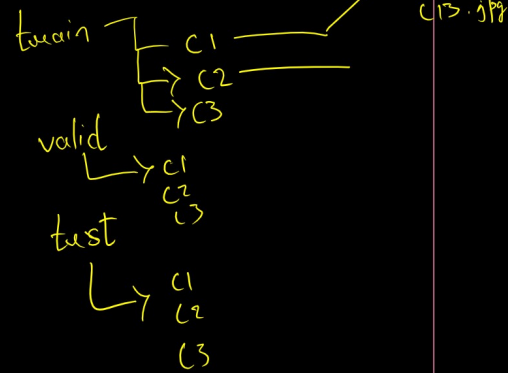 C13.jpg
train
C1
C2
C3
valid
C1
C2
C3
test
C1
C2
C3